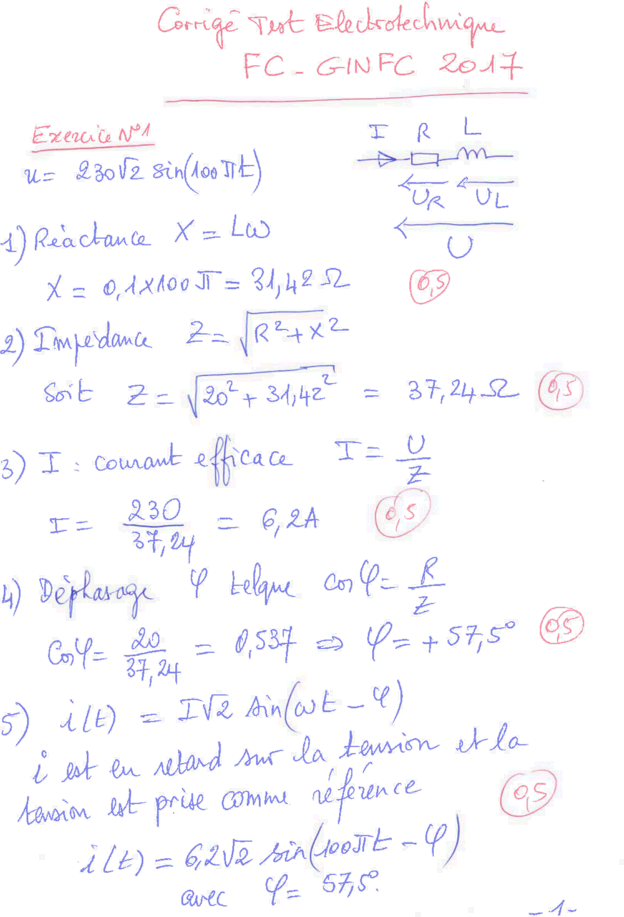 Corrigé Test Electrotechnique
FC - GINFC 2017
Exercice N°1
u = 230√2 sin(100πt)
I R L
U_R U_L
U
1) Réactance X = Lω
X = 0,1x100π = 31,42 Ω
0,5
2) Impédance Z = √(R² + X²)
Soit Z = √(20² + 31,42²) = 37,24 Ω
0,5
3) I : courant efficace I = U/Z
I = 230/37,24 = 6,2A
0,5
4) Déphasage φ telque cosφ = R/Z
Cosφ = 20/37,24 = 0,537 ⇒ φ = +57,5°
0,5
5) i(t) = I√2 sin(ωt - φ)
i est en retard sur la tension et la
tension est prise comme référence
0,5
i(t) = 6,2√2 sin(100πt - φ)
avec φ = 57,5°.
-1-